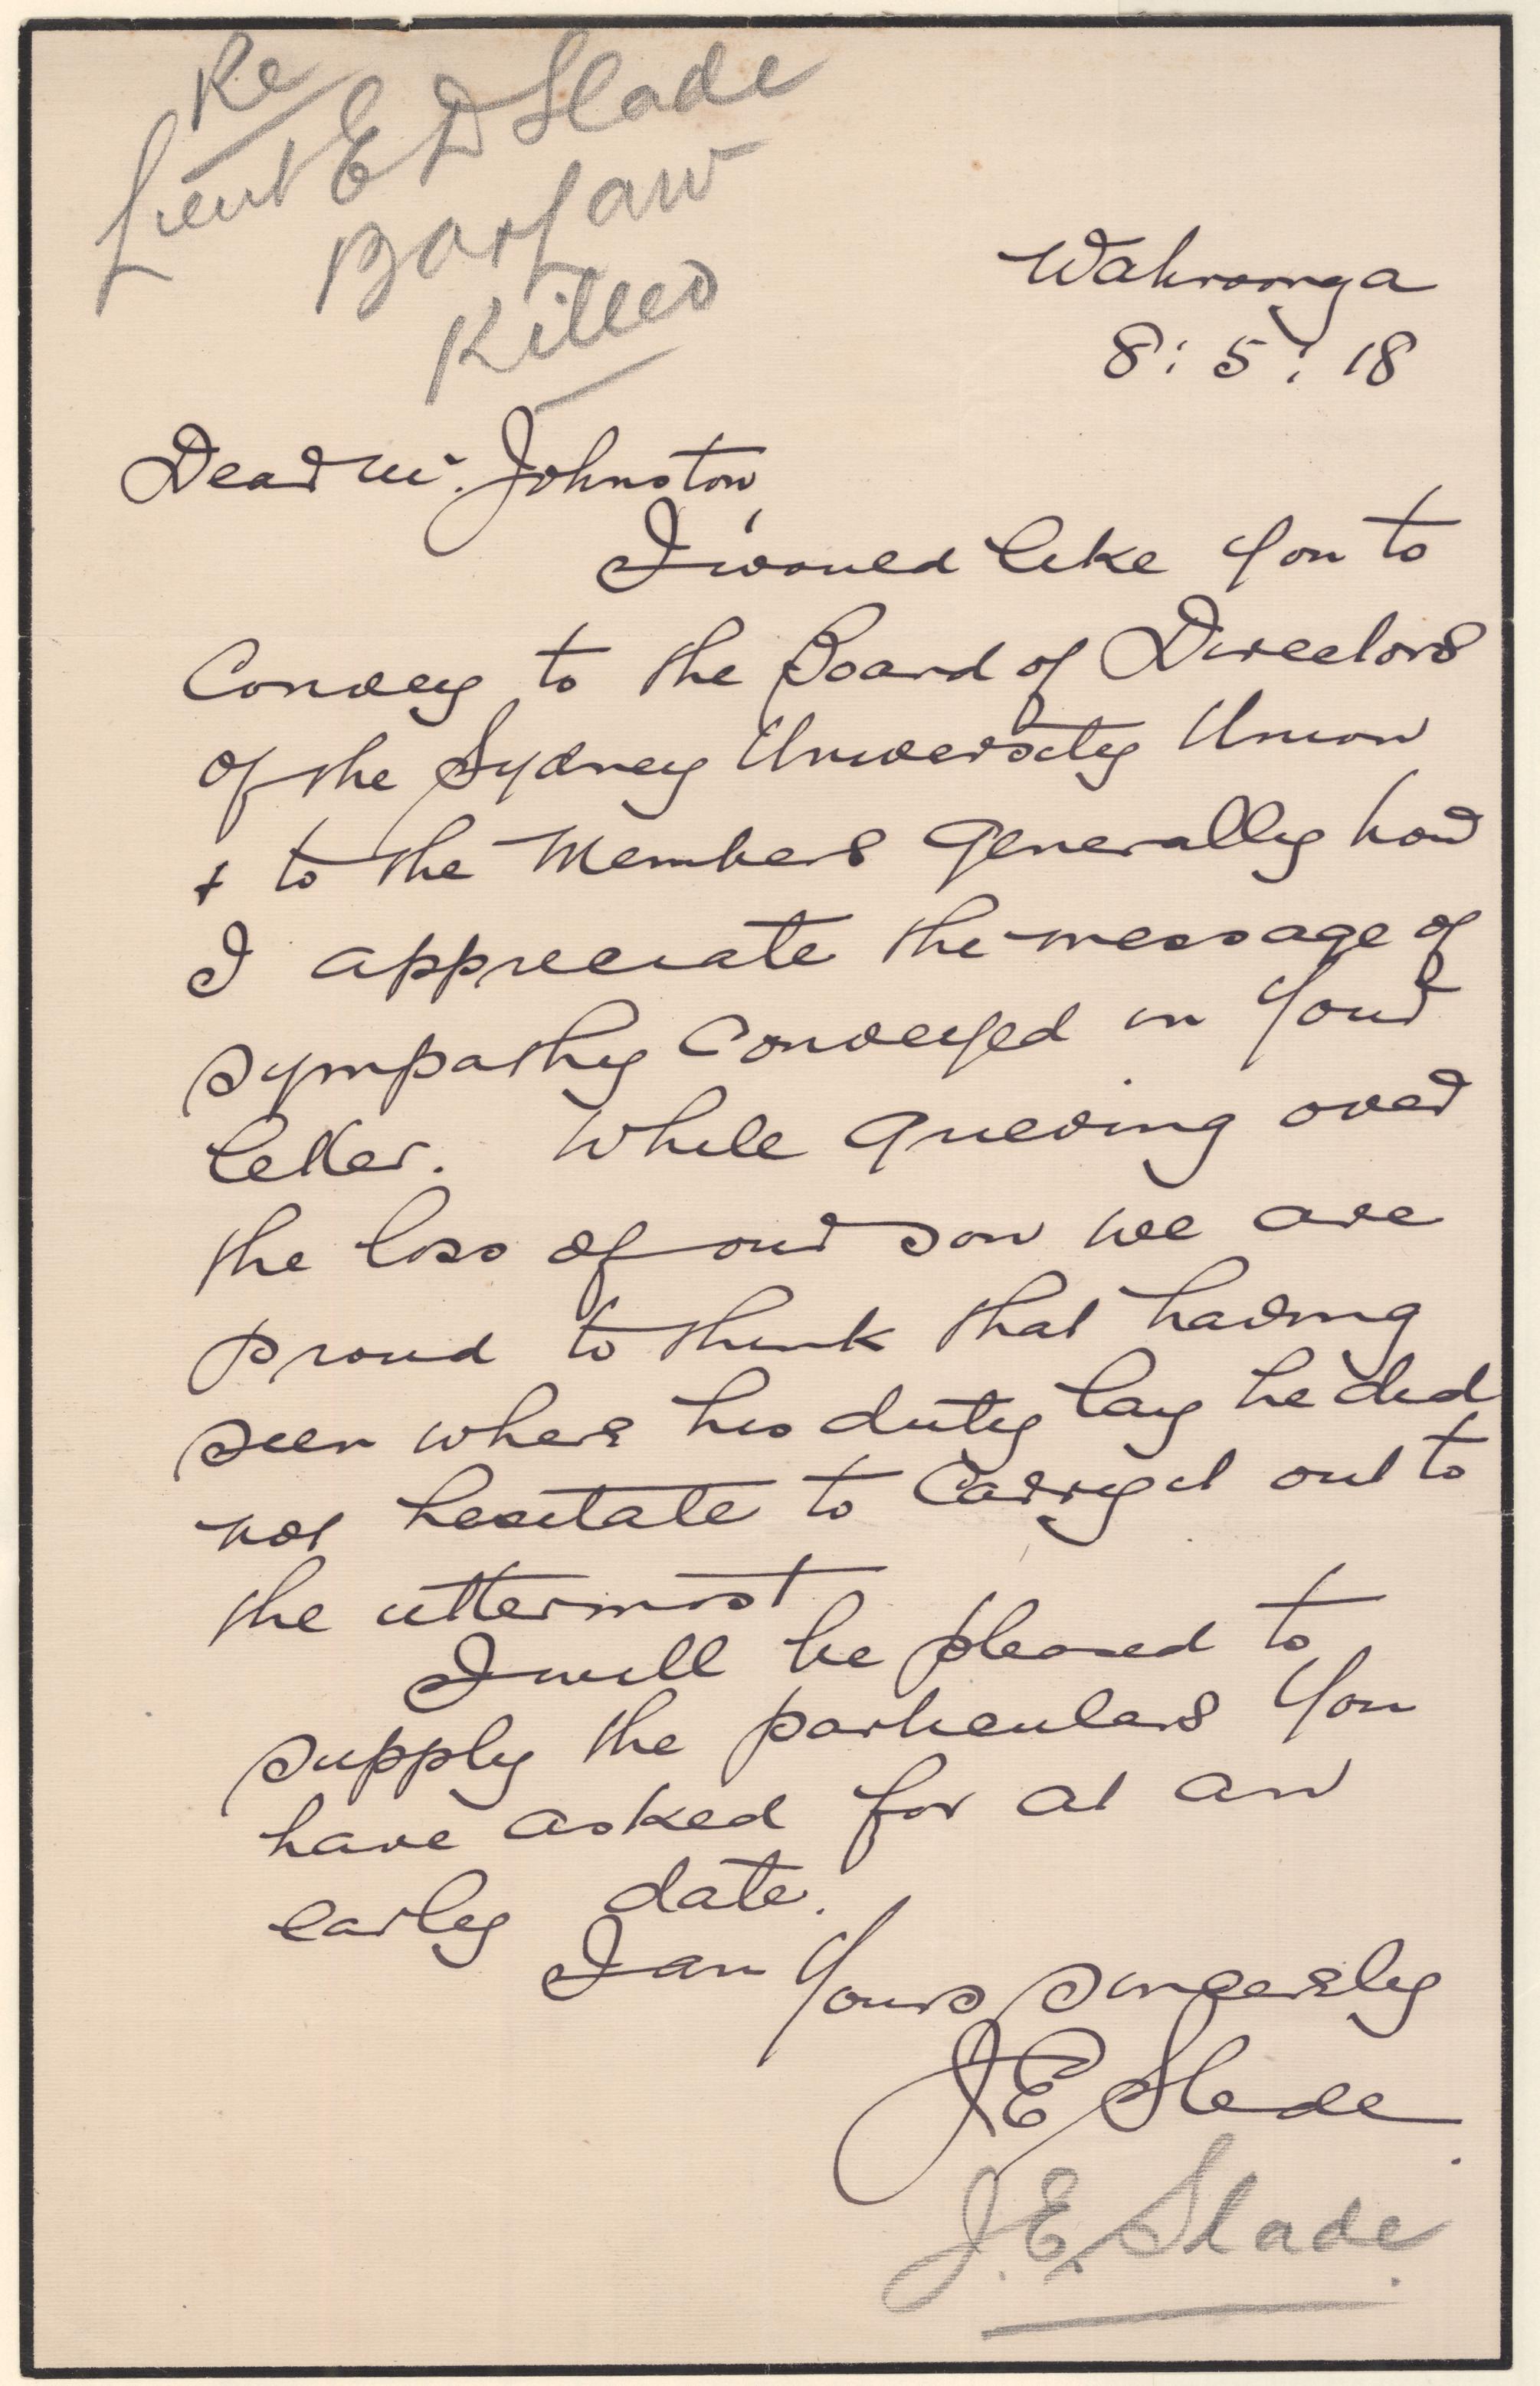 Re
Lieut E D Slade
Barlaw
Killed
Wahroonga
8 : 5 : 18
Dear Mr. Johnston,
I would like you to
convey to the Board of Directors
of the Sydney University Union
+ to the Members generally how
I appreciate the message of
sympathy conveyed in your
letter. While grieving over
the loss of our son we are
proud to think that having
seen where his duty lay he did
not hesitate to carry it out to
the uttermost
I will be pleased to
supply the particulars you
have asked for at an
early date.
I am Yours sincerely
J E Slade.
J. E. Slade.